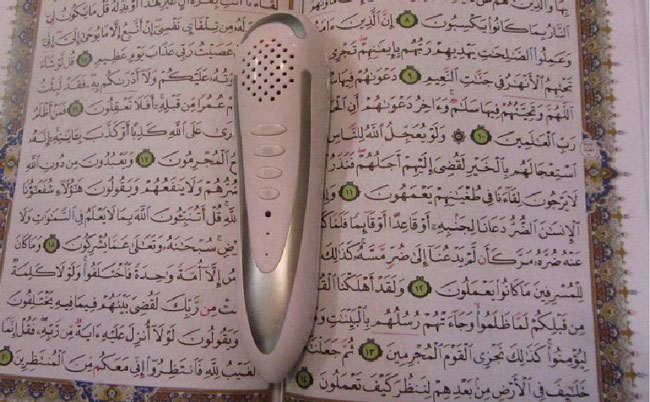 ٱلنَّارُ بِمَا كَانُوا۟ يَكْسِبُونَ ٨ إِنَّ ٱلَّذِينَ
وَعَمِلُوا۟ ٱلصَّٰلِحَٰتِ يَهْدِيهِمْ رَبُّهُم بِإِيمَٰنِهِمْ تَجْرِى
تَحْتِهِمُ ٱلْأَنْهَٰرُ فِى جَنَّٰتِ ٱلنَّعِيمِ ٩ دَعْوَىٰهُمْ فِيهَا
ٱللَّهُمَّ وَتَحِيَّتُهُمْ فِيهَا سَلَٰمٌ وَءَاخِرُ دَعْوَىٰهُمْ أَنِ
رَبِّ ٱلْعَٰلَمِينَ ١٠ وَلَوْ يُعَجِّلُ ٱللَّهُ لِلنَّاسِ
ٱسْتِعْجَالَهُم بِٱلْخَيْرِ لَقُضِىَ إِلَيْهِمْ أَجَلُهُمْ فَنَذَرُ
لَا يَرْجُونَ لِقَآءَنَا فِى طُغْيَٰنِهِمْ يَعْمَهُونَ ١١
ٱلْإِنسَٰنَ ٱلضُّرُّ دَعَانَا لِجَنۢبِهِۦٓ أَوْ قَاعِدًا أَوْ قَآئِمًا فَلَمَّا
عَنْهُ ضُرَّهُۥ مَرَّ كَأَن لَّمْ يَدْعُنَآ إِلَىٰ ضُرٍّ مَّسَّهُۥ كَذَٰلِكَ
لِلْمُسْرِفِينَ مَا كَانُوا۟ يَعْمَلُونَ ١٢ وَلَقَدْ أَهْلَكْنَا
مِن قَبْلِكُمْ لَمَّا ظَلَمُوا۟ وَجَآءَتْهُمْ رُسُلُهُم بِٱلْبَيِّنَٰتِ
لِيُؤْمِنُوا۟ كَذَٰلِكَ نَجْزِى ٱلْقَوْمَ ٱلْمُجْرِمِينَ ١٣ ثُمَّ
خَلَٰٓئِفَ فِى ٱلْأَرْضِ مِنۢ بَعْدِهِمْ لِنَنظُرَ كَيْفَ تَعْمَلُونَ ١٤
مِن تِلْقَآئِ نَفْسِىٓ إِنْ أَتَّبِعُ إِلَّا مَا يُوحَىٰٓ إِلَىَّ
عَصَيْتُ رَبِّى عَذَابَ يَوْمٍ عَظِيمٍ ١٥ قُل لَّوْ شَآءَ
عَلَيْكُمْ وَلَآ أَدْرَىٰكُم بِهِۦ فَقَدْ لَبِثْتُ
عُمُرًا مِّن قَبْلِهِۦٓ أَفَلَا تَعْقِلُونَ ١٦ فَمَنْ أَظْلَمُ
عَلَى ٱللَّهِ كَذِبًا أَوْ كَذَّبَ بِـَٔايَٰتِهِۦٓ إِنَّهُۥ
ٱلْمُجْرِمُونَ ١٧ وَيَعْبُدُونَ مِن دُونِ ٱللَّهِ
يَضُرُّهُمْ وَلَا يَنفَعُهُمْ وَيَقُولُونَ هَٰٓؤُلَآءِ شُفَعَٰٓؤُنَا
قُلْ أَتُنَبِّـُٔونَ ٱللَّهَ بِمَا لَا يَعْلَمُ فِى ٱلسَّمَٰوَٰتِ وَلَا
سُبْحَٰنَهُۥ وَتَعَٰلَىٰ عَمَّا يُشْرِكُونَ ١٨ وَمَا كَانَ
إِلَّآ أُمَّةً وَٰحِدَةً فَٱخْتَلَفُوا۟ وَلَوْلَا كَلِمَةٌ
مِن رَّبِّكَ لَقُضِىَ بَيْنَهُمْ فِيمَا فِيهِ يَخْتَلِفُونَ
وَيَقُولُونَ لَوْلَآ أُنزِلَ عَلَيْهِ ءَايَةٌ مِّن رَّبِّهِۦ فَقُلْ إِنَّمَا
ٱلْغَيْبُ لِلَّهِ فَٱنتَظِرُوٓا۟ إِنِّى مَعَكُم مِّنَ ٱلْمُنتَظِرِينَ ٢٠